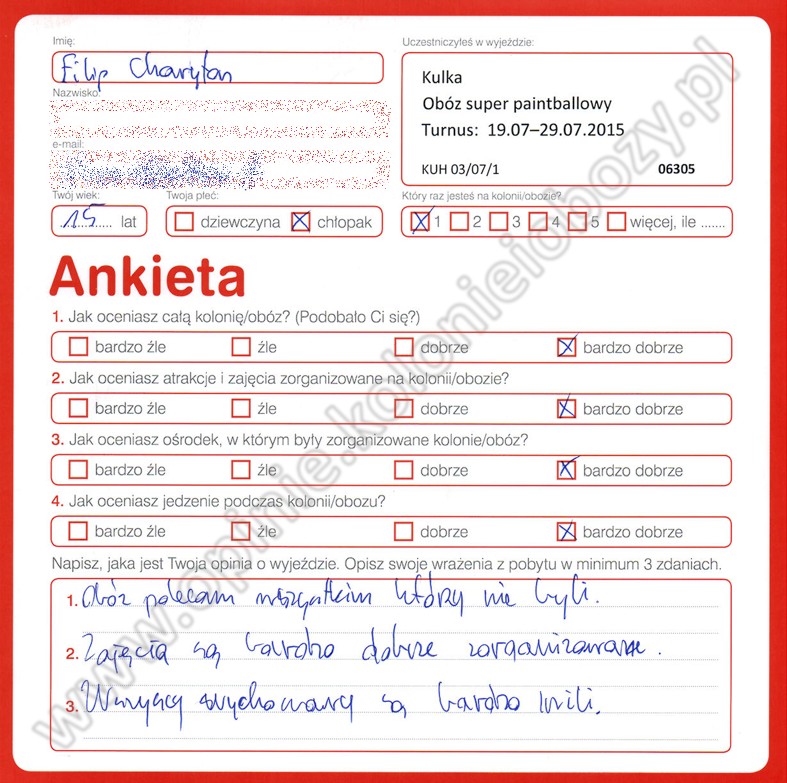 Imię:
Uczestniczyłeś w wyjeździe:
Filip Charyton
Kulka
Nazwisko
Obóz super paintballowy
Turnus: 19.07–29.07.2015
e-mail:
KUH 03/07/1 06305
Twój wiek: Twoja płeć: Który raz jesteś na kolonii/obozie?
15 lat dziewczyna chłopak 1 2 3 4 5 więcej, ile .......
Ankieta
1. Jak oceniasz całą kolonię/obóz? (Podobało Ci się?)
bardzo źle źle dobrze bardzo dobrze
2. Jak oceniasz atrakcje i zajęcia zorganizowane na kolonii/obozie?
bardzo źle źle dobrze bardzo dobrze
3. Jak oceniasz ośrodek, w którym były zorganizowane kolonie/obóz?
bardzo źle źle dobrze bardzo dobrze
4. Jak oceniasz jedzenie podczas kolonii/obozu?
bardzo źle źle dobrze bardzo dobrze
Napisz, jaka jest Twoja opinia o wyjeździe. Opisz swoje wrażenia z pobytu w minimum 3 zdaniach.
1. Obóz polecam wszystkim którzy nie byli.
2. Zajęcia są bardzo dobrze zorganizowane.
3. Wszyscy wychowawcy są bardzo mili.
www.opinie.kolonieiobozy.pl